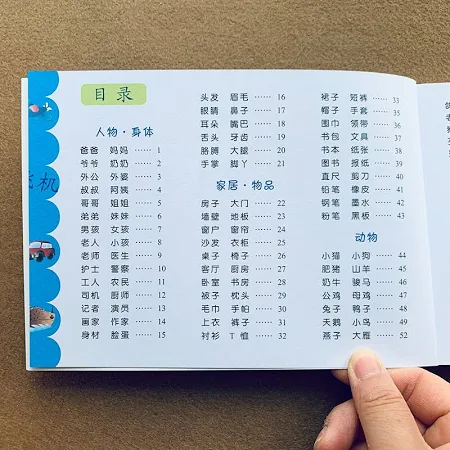 目录
人物·身体
爸爸 妈妈 …… 1
爷爷 奶奶 …… 2
外公 外婆 …… 3
叔叔 阿姨 …… 4
哥哥 姐姐 …… 5
弟弟 妹妹 …… 6
男孩 女孩 …… 7
老人 小孩 …… 8
老师 医生 …… 9
护士 警察 …… 10
工人 农民 …… 11
司机 厨师 …… 12
记者 演员 …… 13
画家 作家 …… 14
身材 脸蛋 …… 15
头发 眉毛 …… 16
眼睛 鼻子 …… 17
耳朵 嘴巴 …… 18
舌头 牙齿 …… 19
胳膊 大腿 …… 20
手掌 脚丫 …… 21
家居·物品
房子 大门 …… 22
墙壁 地板 …… 23
窗户 窗帘 …… 24
沙发 衣柜 …… 25
桌子 椅子 …… 26
客厅 厨房 …… 27
卧室 书房 …… 28
被子 枕头 …… 29
毛巾 手帕 …… 30
上衣 裤子 …… 31
衬衫 T恤 …… 32
裙子 短裤 …… 33
帽子 手套 …… 35
围巾 领带 …… 36
书包 文具 …… 37
书本 纸张 …… 38
图书 报纸 …… 39
直尺 剪刀 …… 40
铅笔 橡皮 …… 41
钢笔 墨水 …… 42
粉笔 黑板 …… 43
动物
小猫 小狗 …… 44
肥猪 山羊 …… 45
奶牛 骏马 …… 46
公鸡 母鸡 …… 47
兔子 鸭子 …… 48
天鹅 小鸟 …… 49
燕子 大雁 …… 52
机